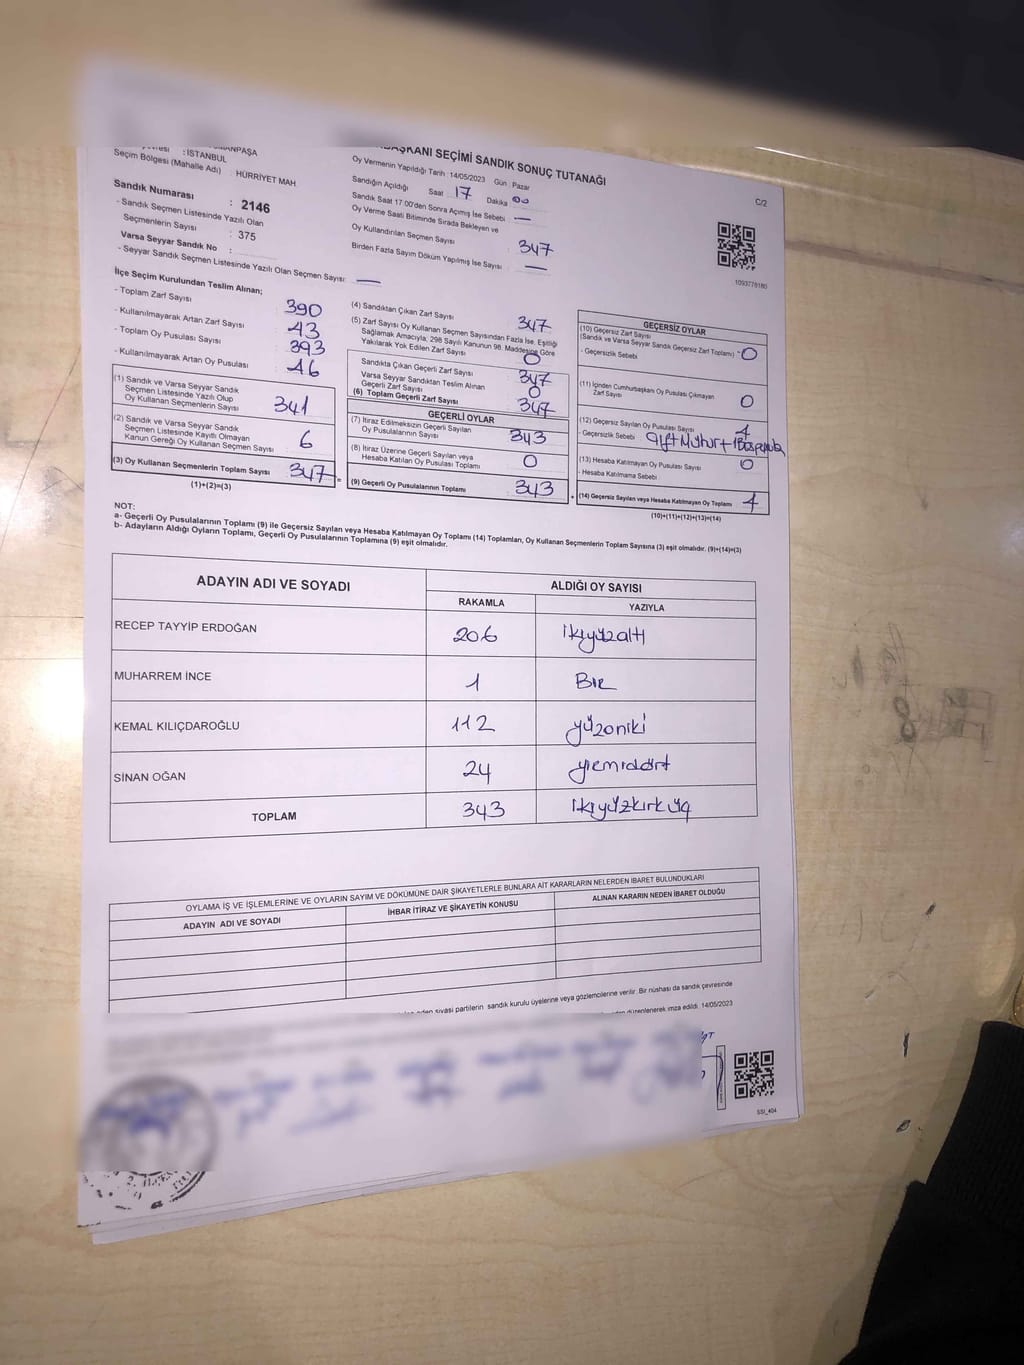 ŞKANI SEÇİMİ SANDIK SONUÇ TUTANAĞI
C/2
MANPAŞA
: İSTANBUL
Seçim Bölgesi (Mahalle Adı) : HÜRRİYET MAH
Sandık Numarası : 2146
- Sandık Seçmen Listesinde Yazılı Olan
Seçmenlerin Sayısı : 375
Varsa Seyyar Sandık No :
- Seyyar Sandık Seçmen Listesinde Yazılı Olan Seçmen Sayısı: —
Oy Vermenin Yapıldığı Tarih : 14/05/2023 Gün : Pazar
Sandığın Açıldığı Saat : 17 Dakika : 00
Sandık Saat 17.00'den Sonra Açılmış İse Sebebi : —
Oy Verme Saati Bitiminde Sırada Bekleyen ve
Oy Kullandırılan Seçmen Sayısı : 347
Birden Fazla Sayım Döküm Yapılmış İse Sayısı : —
1093778180
İlçe Seçim Kurulundan Teslim Alınan;
- Toplam Zarf Sayısı 390
- Kullanılmayarak Artan Zarf Sayısı 43
- Toplam Oy Pusulası Sayısı 393
- Kullanılmayarak Artan Oy Pusulası 46
(1) Sandık ve Varsa Seyyar Sandık
Seçmen Listesinde Yazılı Olup
Oy Kullanan Seçmenlerin Sayısı 341
(2) Sandık ve Varsa Seyyar Sandık
Seçmen Listesinde Kayıtlı Olmayan
Kanun Gereği Oy Kullanan Seçmen Sayısı 6
(3) Oy Kullanan Seçmenlerin Toplam Sayısı 347
(1)+(2)=(3)
(4) Sandıktan Çıkan Zarf Sayısı 347
(5) Zarf Sayısı Oy Kullanan Seçmen Sayısından Fazla İse, Eşitliği
Sağlamak Amacıyla; 298 Sayılı Kanunun 98. Maddesine Göre
Yakılarak Yok Edilen Zarf Sayısı 0
Sandıkta Çıkan Geçerli Zarf Sayısı 347
Varsa Seyyar Sandıktan Teslim Alınan
Geçerli Zarf Sayısı 0
(6) Toplam Geçerli Zarf Sayısı 347
GEÇERLİ OYLAR
(7) İtiraz Edilmeksizin Geçerli Sayılan
Oy Pusulalarının Sayısı 343
(8) İtiraz Üzerine Geçerli Sayılan veya
Hesaba Katılan Oy Pusulası Toplamı 0
(9) Geçerli Oy Pusulalarının Toplamı 343
GEÇERSİZ OYLAR
(10) Geçersiz Zarf Sayısı
(Sandık ve Varsa Seyyar Sandık Geçersiz Zarf Toplamı) 0
- Geçersizlik Sebebi
(11) İçinden Cumhurbaşkanı Oy Pusulası Çıkmayan
Zarf Sayısı 0
(12) Geçersiz Sayılan Oy Pusulası Sayısı 4
- Geçersizlik Sebebi
(13) Hesaba Katılmayan Oy Pusulası Sayısı 0
- Hesaba Katılmama Sebebi
(14) Geçersiz Sayılan veya Hesaba Katılmayan Oy Toplamı 4
(10)+(11)+(12)+(13)=(14)
NOT:
a- Geçerli Oy Pusulalarının Toplamı (9) ile Geçersiz Sayılan veya Hesaba Katılmayan Oy Toplamı (14) Toplamları, Oy Kullanan Seçmenlerin Toplam Sayısına (3) eşit olmalıdır. (9)+(14)=(3)
b- Adayların Aldığı Oyların Toplamı, Geçerli Oy Pusulalarının Toplamına (9) eşit olmalıdır.
ADAYIN ADI VE SOYADI ALDIĞI OY SAYISI
RAKAMLA YAZIYLA
RECEP TAYYİP ERDOĞAN 206 ikiyüzaltı
MUHARREM İNCE 1 BİR
KEMAL KILIÇDAROĞLU 112 yüzoniki
SİNAN OĞAN 24 yirmidört
TOPLAM 343 ikiyüzkırküç
OYLAMA İŞ VE İŞLEMLERİNE VE OYLARIN SAYIM VE DÖKÜMÜNE DAİR ŞİKAYETLERLE BUNLARA AİT KARARLARIN NELERDEN İBARET BULUNDUKLARI
ADAYIN ADI VE SOYADI İHBAR İTİRAZ VE ŞİKAYETİN KONUSU ALINAN KARARIN NEDEN İBARET OLDUĞU
eden siyasi partilerin sandık kurulu üyelerine veya gözlemcilerine verilir. Bir nüshası da sandık çevresinde
düzenlenerek imza edildi. 14/05/2023
SSI_404